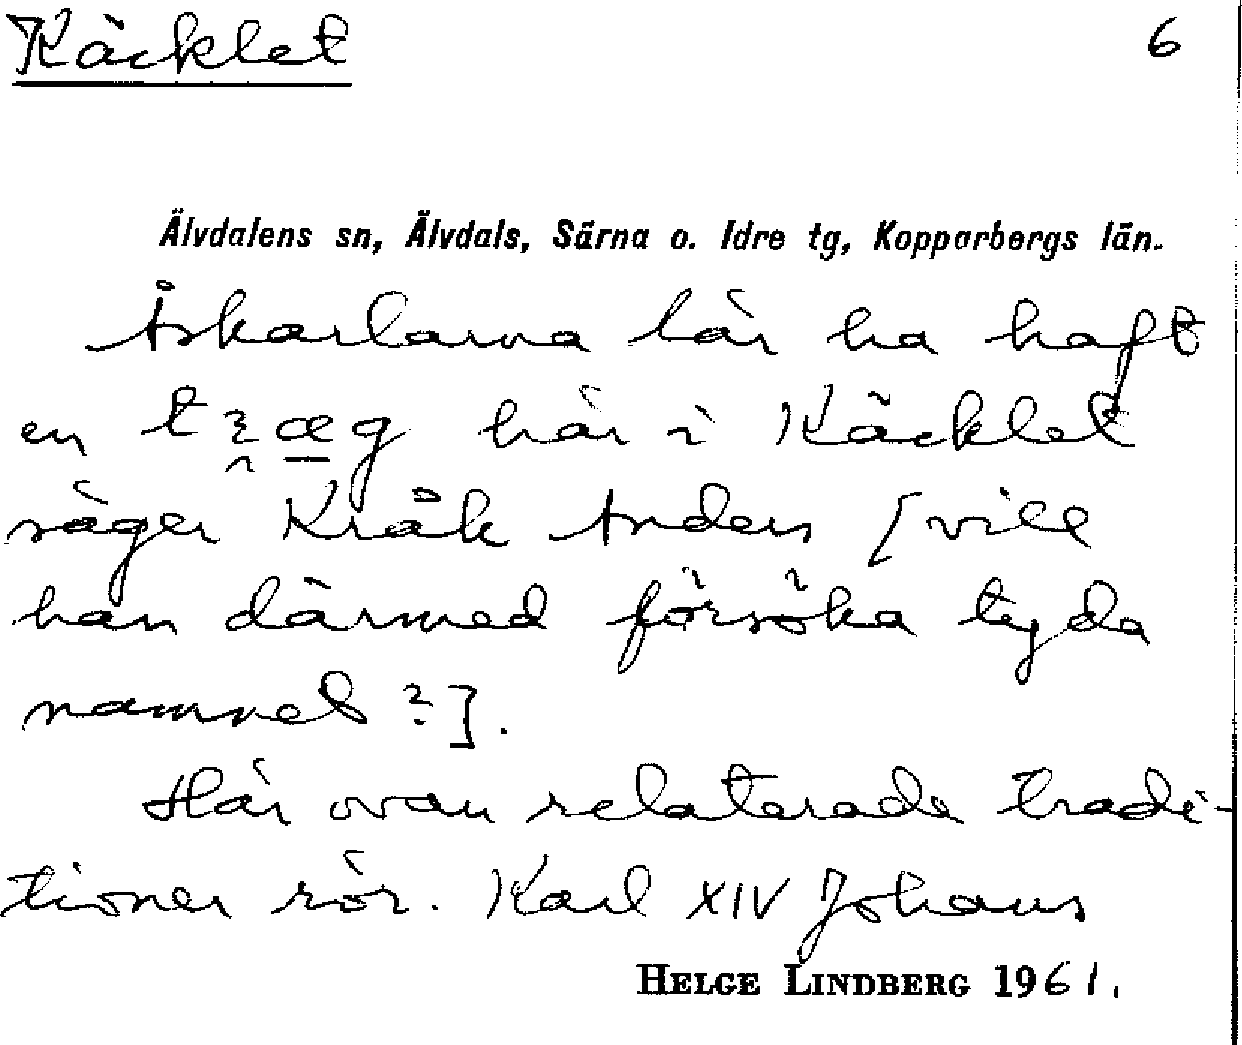 Käcklet 6
Älvdalens sn, Älvdals, Särna o. Idre tg, Kopparbergs län.
Åskarlarna lär ha haft
en här i Käcklet
säger Kråk Anders [vill
han därmed försöka tyda
namnet?].
Här ovan relaterade tradi-
tioner rör. Karl XIV Johans
HELGE LINDBERG 1961.